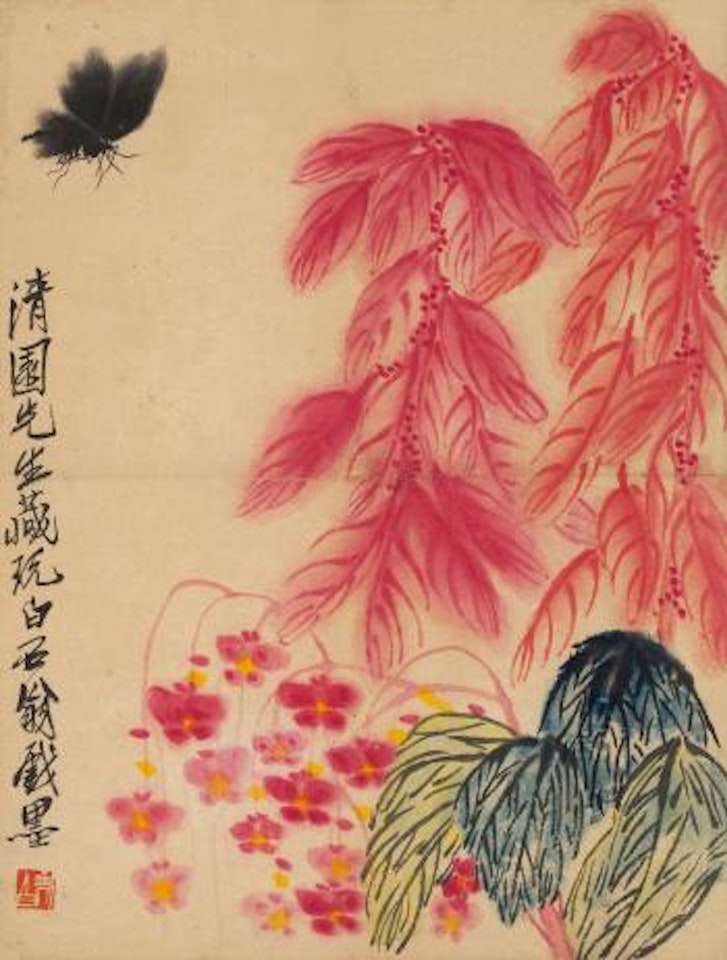 清園先生藏玩白石翁戲墨